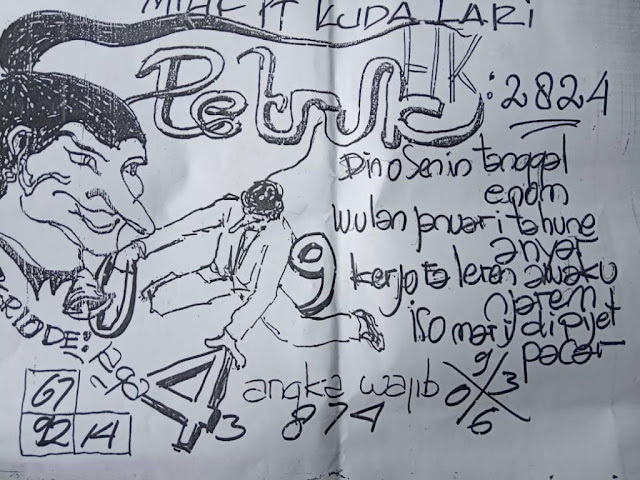 MILIK PT KUDA LARI
Petruk
HK: 2824
Dino Senin tanggal
enom
wulan januari tahune
anyar
9 kerjo ta leren awaku
njarem
iso mari di pijet
pacar
PERIODE:
angka wajib
3 874
9
0 3
6
67
92 14